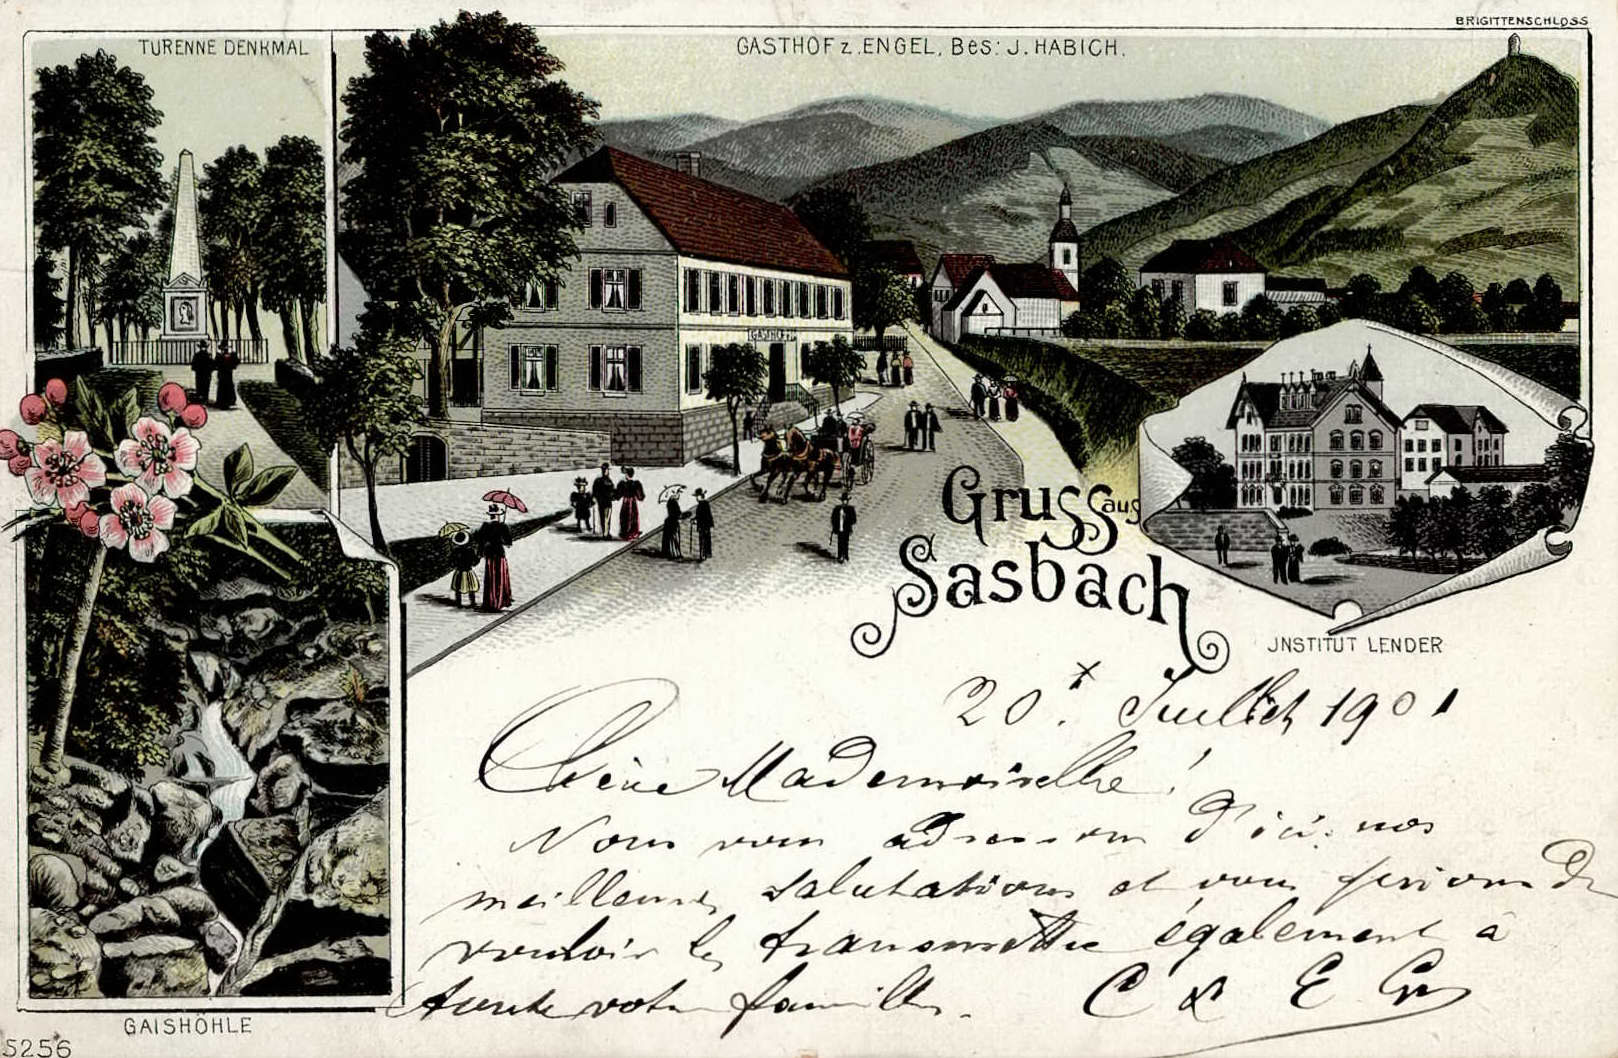 BRIGITTENSCHLOSS
TURENNE DENKMAL
GASTHOF z. ENGEL, Bes: J. HABICH.
GASTHOF
Gruss aus
Sasbach
JNSTITUT LENDER
20. Juillet 1901
Chère Mademoiselle!
Nous vous adressons d'ici nos
meilleures salutations et vous prions de
vouloir les transmettre également à
toute votre famille.
C & E
GAISHÖHLE
5256